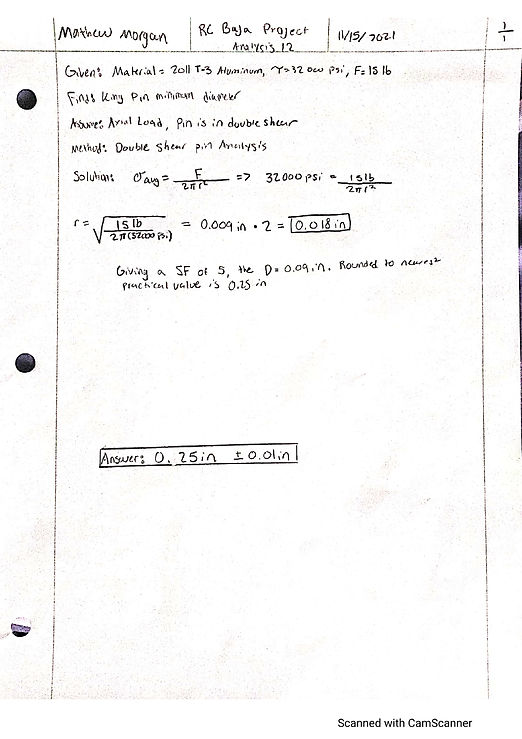 Mathew Morgan
RC Baja Project
Analysis 12
11/15/2021
1/1
Given: Material = 2011 T-3 Aluminum, τ=32000 psi, F=15 lb
Find: King Pin minimum diameter
Assume: Axial Load, Pin is in double shear
Method: Double shear pin Analysis
Solution: σavg = F/2πr² => 32000 psi = 15 lb/2πr²
r = √(15 lb/2π(32000 psi)) = 0.009 in • 2 = 0.018 in
Giving a SF of 5, the D = 0.09 in. Rounded to nearest
practical value is 0.25 in
Answer: 0.25in ±0.01in
Scanned with CamScanner